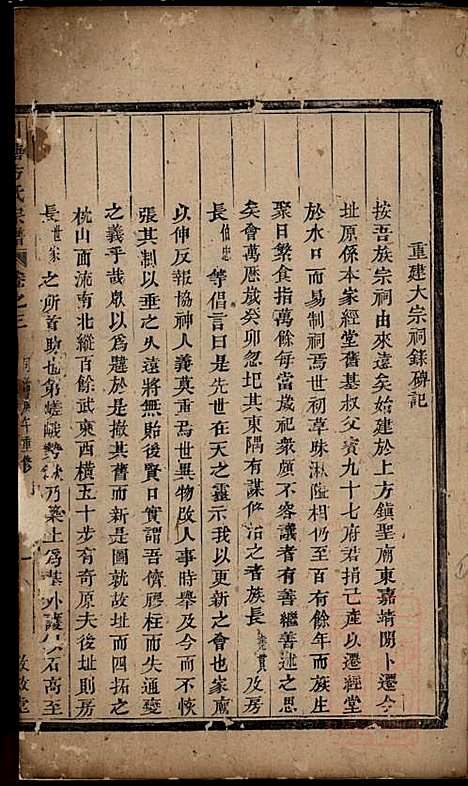 重建大宗祠錄碑記
按吾族宗祠由來遠矣始建於上方鎮聖廟東嘉靖間卜遷今
址原係本家經堂舊基叔父賓九十七府君捐己產以遷經堂
於水口而易制祠焉世初草昧湫隘相仍至百有餘年而族生
聚日繁食指萬餘每當歲祀衆頗不容議者有善繼善述之思
矣會萬厯歲癸卯忽圯其東隅有謀修治之者族長 貫 及房
長伯忠 等倡言曰是先世在天之靈示我以更新之會也家廟
以伸反報協神人義莫重焉世異物改人事時舉及今而不恢
張其制以垂之久遠將無貽後賢口實謂吾儕膠柱而失通變
之義乎哉章以為韙於是撤其舊而新是圖就故址而四拓之
枕山而流南北縱百餘武東西橫五十步有奇原夫後址則房
長世家 之所首助也第嵯峨勢 乃築土為基外護以石高至
方氏宗譜 卷之三 庚午重修 一 敦敘堂